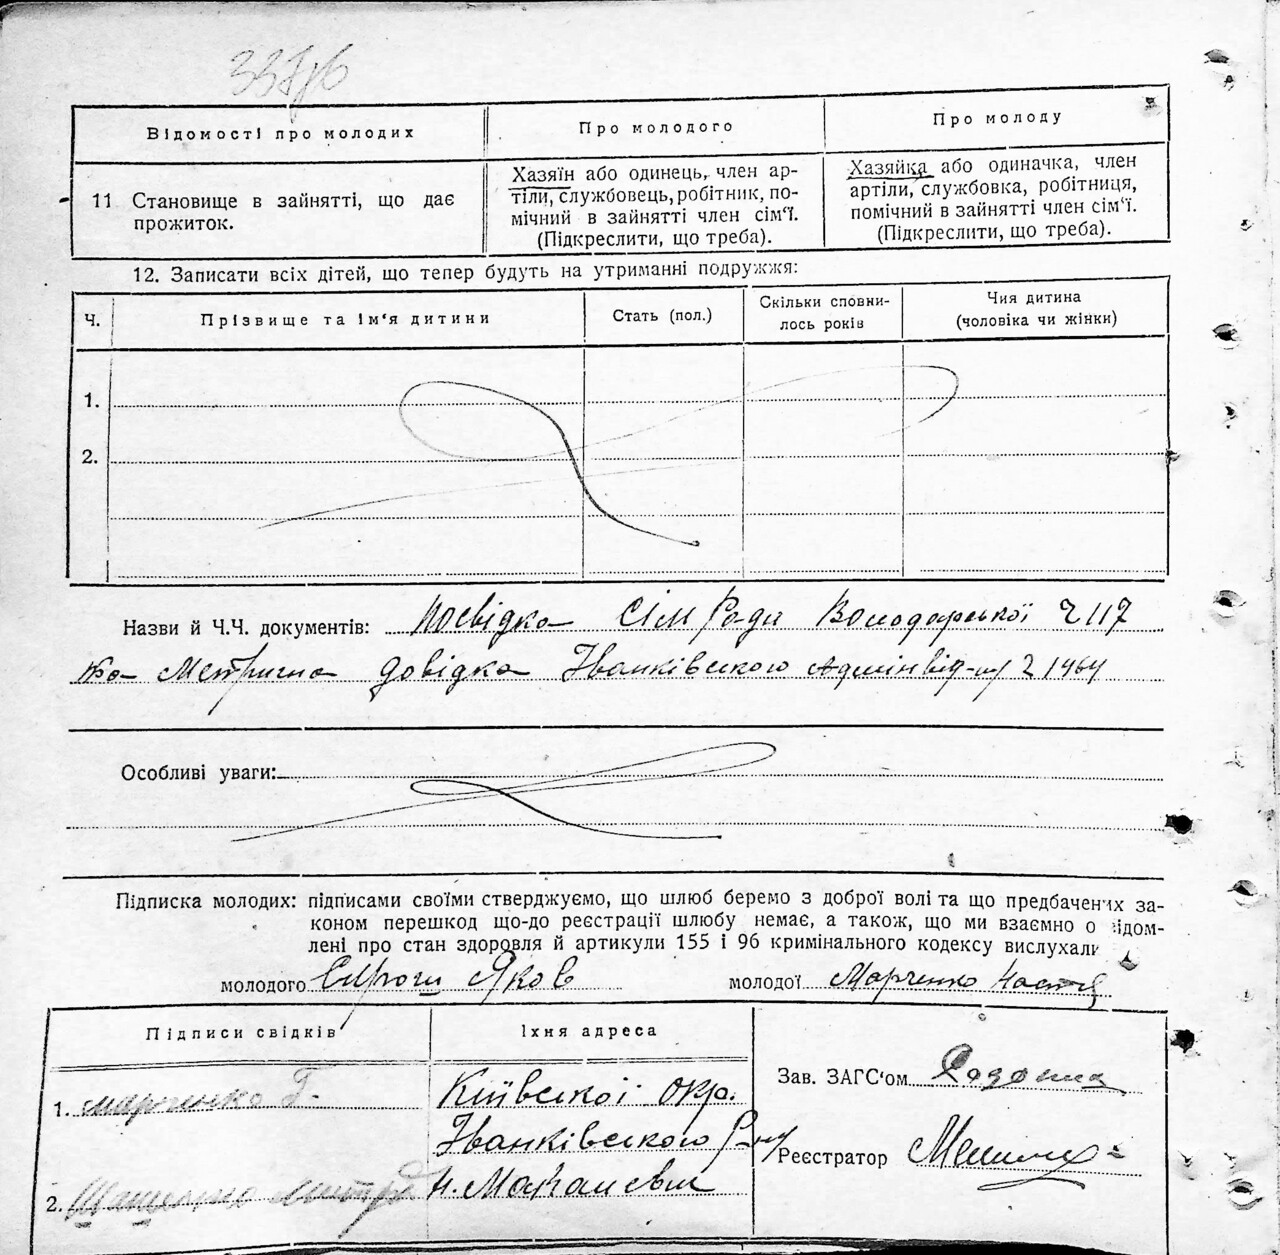 Відомості про молодих
Про молодого
Про молоду
11 Становище в зайнятті, що дає
прожиток.
Хазяїн або одинець, член ар-
тіли, службовець, робітник, по-
мічний в зайнятті член сім'ї.
(Підкреслити, що треба).
Хазяйка або одиначка, член
артіли, службовка, робітниця,
помічний в зайнятті член сім'ї.
(Підкреслити, що треба).
12. Записати всіх дітей, що тепер будуть на утриманні подружжя:
Ч.
Прізвище та ім'я дитини
Стать (пол.)
Скільки сповни-
лось років
Чия дитина
(чоловіка чи жінки)
1.
2.
Назви й Ч.Ч. документів: Посвідка Сіл Ради Володарської 117
Метрична довідка Іванківського Адмінвід 1464
Особливі уваги:
Підписка молодих: підписами своїми стверджуємо, що шлюб беремо з доброї волі та що предбачених за-
коном перешкод що-до реєстрації шлюбу немає, а також, що ми взаємно о відом-
лені про стан здоровля й артикули 155 і 96 кримінального кодексу вислухали
молодого Яков молодої Марченко Настя
Підписи свідків
Їхня адреса
1. Марченко Г.
Київської окр.
Іванківського Р-ну
2.
Зав. ЗАГС'ом
Реєстратор